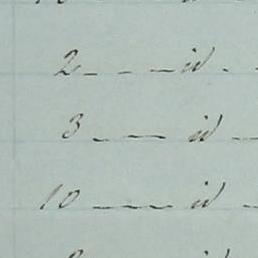 2 - - - id . -
3 - - - id -
10 - - - id -